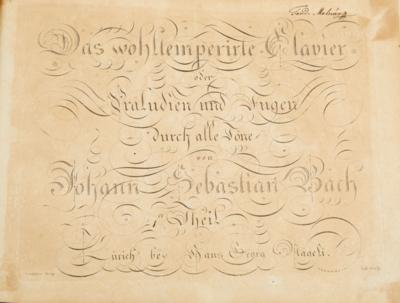 Das wohltemperirte Clavier
oder
Präludien und Fugen
durch alle Töne
von
Johann Sebastian Bach
1r Theil
Zürich bey Hans Georg Nägeli.